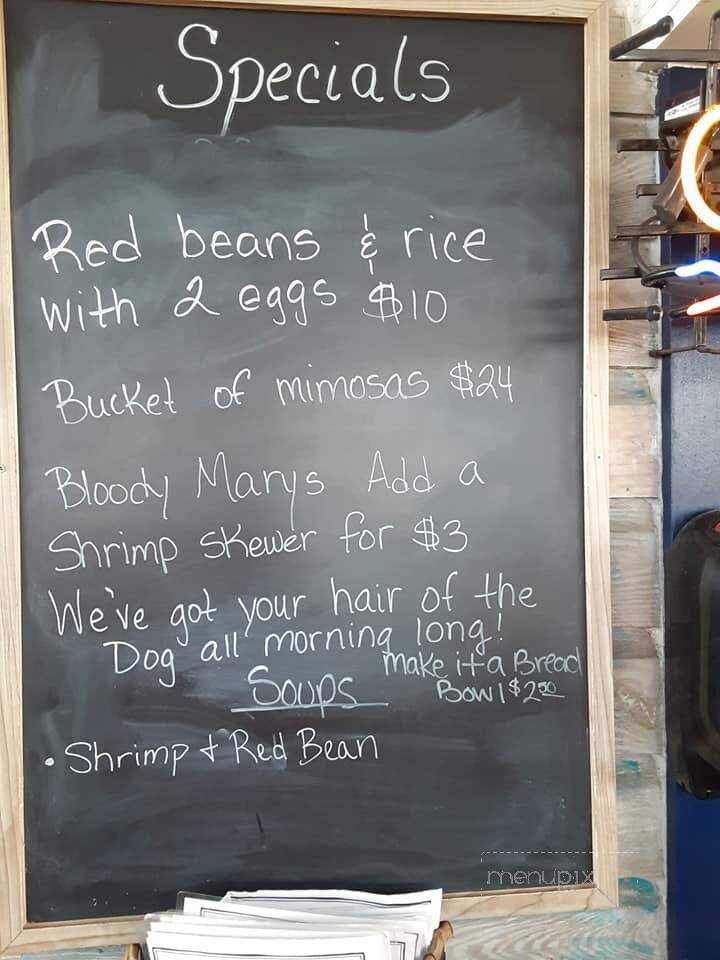 Specials
Red beans & rice
with 2 eggs $10
Bucket of mimosas $24
Bloody Marys Add a
Shrimp skewer for $3
We've got your hair of the
Dog all morning long!
make it a Bread
Bowl $2.50
Soups
• Shrimp + Red Bean
menupix